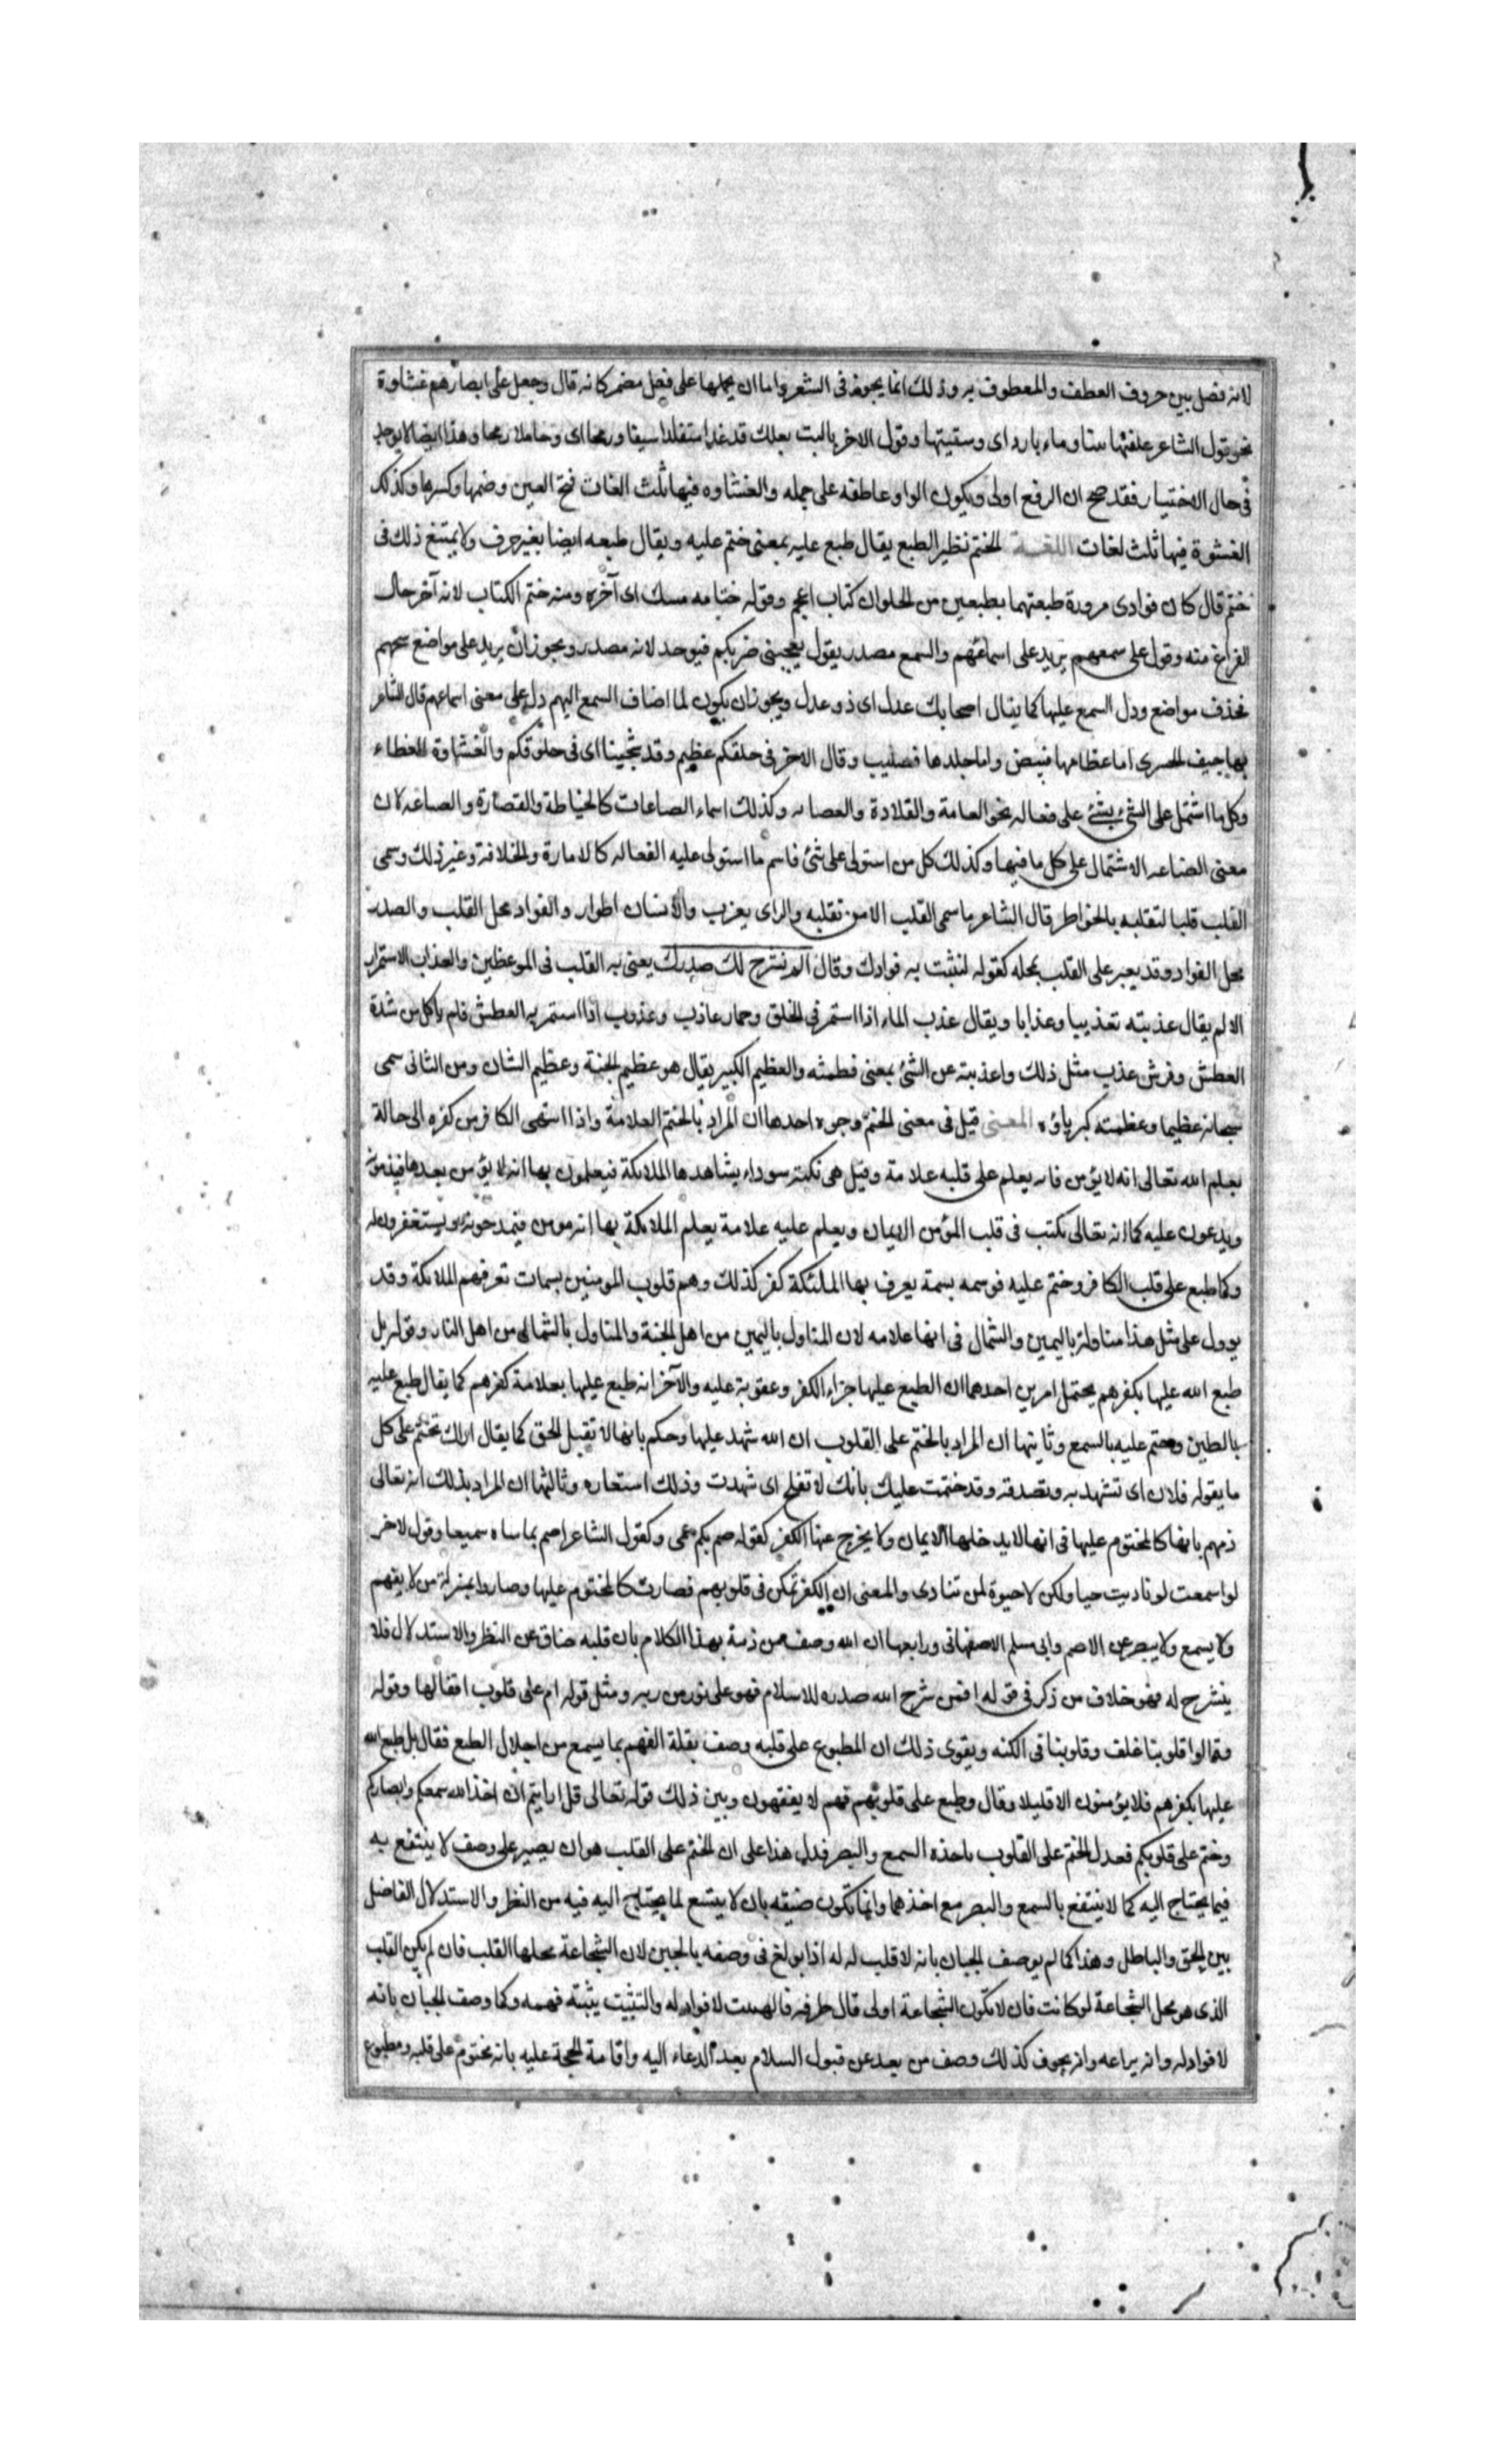 لانه فصل بين حروف العطف والمعطوف به وذلك انما يجوز فى الشعر واما ان يحملها على فعل مضمر كانه قال وجعل على ابصارهم غشاوة
نحو قول الشاعر علفتها تبنا وماء بارد اى وسقيتها وقول الاخر يا ليت بعلك قد غدا متقلدا سيفا ورمحا اى وحاملا رمحا وهذا ايضا لا يوجد
فى حال الاختيار فقد صح ان الرفع اولى ويكون الواو عاطفه على جمله والغشاوه فيها ثلث الغات فتح الغين وضمها وكسرها وكذلك
الغشوة فيها ثلث لغات اللغـــة الختم نظير الطبع يقال طبع عليه بمعنى ختم عليه ويقال طبعه ايضا بغير حرف ولا يمتنع ذلك فى
ختم قال كان فوادى مرودة طبعتهما بطبعين من الحلوان كتاب اعجم وقوله ختامه مسك اى آخره ومنه ختم الكتاب لانه آخر حال
الفراغ منه وقول على سمعهم يريد على اسماعهم والسمع مصدر يقول يعجبنى ضربكم فيوحد لانه مصدر ويجوز ان يريد على مواضع سمعهم
فحذف مواضع ودل السمع عليها كما يقال اصحابك عدل اى ذو عدل ويجوز ان يكون لما اضاف السمع اليهم دل على معنى اسماعهم قال الشاعر
بها جيف الحسرى اما عظامها فبيض واما جلدها فصليب وقال الاخر فى حلقكم عظيم وقد شجينا اى فى حلوقكم والغشاوة الغطاء
وكل ما اشتمل على الشئ يشئ على فعاله نحو العمامة والقلادة والعصابه وكذلك اسماء الصناعات كالخياطة والقصارة والصياغه لان
معنى الصناعه الاشتمال على كل ما فيها وكذلك كل من استولى على شئ فاسم ما استولى عليه الفعاله كالامارة والخلافة وغير ذلك وسمى
القلب قلبا لتقلبه بالخواطر قال الشاعر ما سمى القلب الا من تقلبه والراى يعزب والانسان اطوار والفواد محل القلب والصدر
محل الفواد وقد يعبر على القلب بمحله كقوله لنثبت به فوادك وقال الم نشرح لك صدرك يعنى به القلب فى الموعظين والعذاب الاستمرار
الالم يقال عذبته تعذيبا وعذابا ويقال عذب الماء اذا استمر فى الحلق وحمار عاذب وعذوب اذا استمر به العطش فلم ياكل من شدة
العطش وفرش عذب مثل ذلك واعذبته عن الشئ بمعنى فطمته والعظيم الكبير يقال هو عظيم الجنة وعظيم الشان ومن الثانى سمى
سبحانه عظيما وعظمته كبرياؤه المعنى قيل فى معنى الختم وجوه احدها ان المراد بالختم العلامة واذا انتهى الكافر من كفره الى حالة
يعلم الله تعالى انه لا يؤمن فانه يعلم على قلبه علامة وقيل هى نكته سوداء يشاهدها الملائكة فيعلمون بها انه لا يؤمن بعدها فيذمونه
ويدعون عليه كما انه تعالى نكتب فى قلب المؤمن الايمان ويعلم عليه علامة يعلم الملائكة بها انه مومن فيمدحونه ويستغفرون له
وكما طبع على قلب الكافر وختم عليه فوسمه بسمة يعرف بها الملئكة كفر كذلك وهم قلوب المومنين بسمات تعرفهم الملائكة وقد
يوول على مثل هذا مناولة باليمين والشمال فى انها علامه لان المناول باليمين من اهل الجنة والمناول بالشمالى من اهل النار وقوله بل
طبع الله عليها بكفرهم يحتمل امرين احدهما ان الطبع عليها جزاء الكفر وعقوبة عليه والآخر انه طبع عليها بعلامة كفرهم كما يقال طبع عليه
بالطين وختم عليه بالسمع وثانيها ان المراد بالختم على القلوب ان الله شهد عليها وحكم بانها لا تقبل الحق كما يقال اراك تختم على كل
ما يقوله فلان اى تشهد به وتصدقه وقد ختمت عليك بانك لا تفلح اى شهدت وذلك استعاره وثالثها ان المراد بذلك انه تعالى
ذمهم بانها كالمختوم عليها فى انها لا يدخلها الايمان ولا يخرج عنها الكفر كقوله صم بكم عمى وكقول الشاعر اصم بما ساه سميعا وقول لاخر
لو اسمعت لو ناديت حيا ولكن لا حيوة لمن تنادى والمعنى ان الكفر تمكن فى قلوبهم فصارت كالمختوم عليها وصاروا بمنزلة من لا يفهم
ولا يسمع ولا يبصر عن الاصم وابى مسلم الاصفهانى ورابعها ان الله وصف من ذمة بهذا الكلام بان قلبه ضاق عن النظر والاستدلال فلا
ينشرح له فهو خلاف من ذكر فى قوله افمن شرح الله صدره للاسلام فهو على نور من ربه ومثل قوله ام على قلوب اقفالها وقوله
وقالوا قلوبنا غلف وقلوبنا فى اكنه ويقوى ذلك ان المطبوع على قلبه وصف بقلة الفهم بما يسمع من اجلال الطبع فقال بل طبع الله
عليها بكفرهم فلا يؤمنون الا قليلا وقال وطبع على قلوبهم فهم لا يفقهون وبين ذلك قوله تعالى قل ارايتم ان اخذ الله سمعكم وابصاركم
وختم على قلوبكم فعدل الختم على القلوب باخذه السمع والبصر فدل هذا على ان الختم على القلب هو ان يصير على وصف لا ينتفع به
فيما يحتاج اليه كما لا ينتفع بالسمع والبصر مع اخذهما وانما تكون ضيقه بان لا يتسع لما يحتاج اليه فيه من النظر والاستدلال الفاضل
بين الحق والباطل وهذا كما لم يوصف الجبان بانه لا قلب له له اذا بولغ فى وصفه بالجبن لان الشجاعة محلها القلب فان لم يكن القلب
الذى هو محل الشجاعة لو كانت فان لا تكون الشجاعة اولى قال طرفه فالهبيت لا فواد له والتثبيت يثبته فهمه وكما وصف الجبان بانه
لا فواد له وانه يراعه وانه يجوف كذلك وصف من بعد عن قبول السلام بعد الدعاء اليه واقامة الحجة عليه بانه مختوم على قلبه ومطبوع